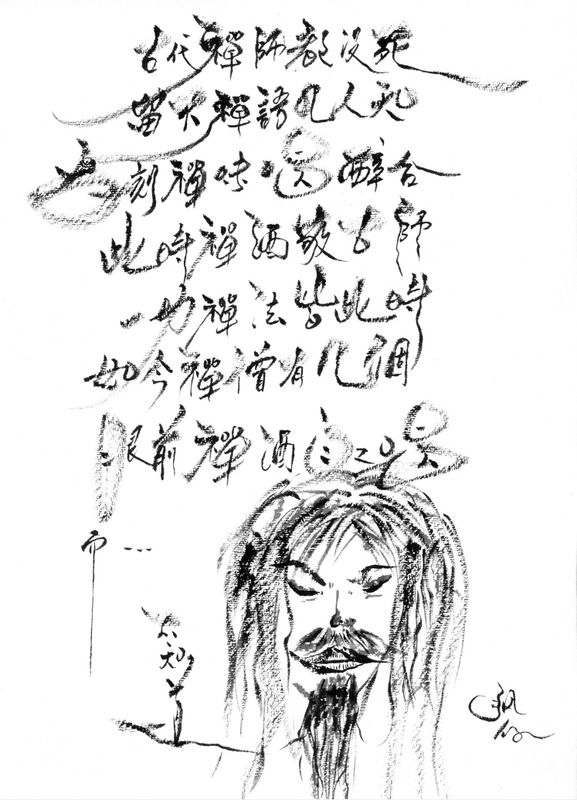 古代禪師都沒死
留大禪語几人知
古刻禪味喝醉台
此時禪酒敬古師
一切禪法皆此時
如今禪僧有几個
眼前禪酒自己喝
而...
不知道